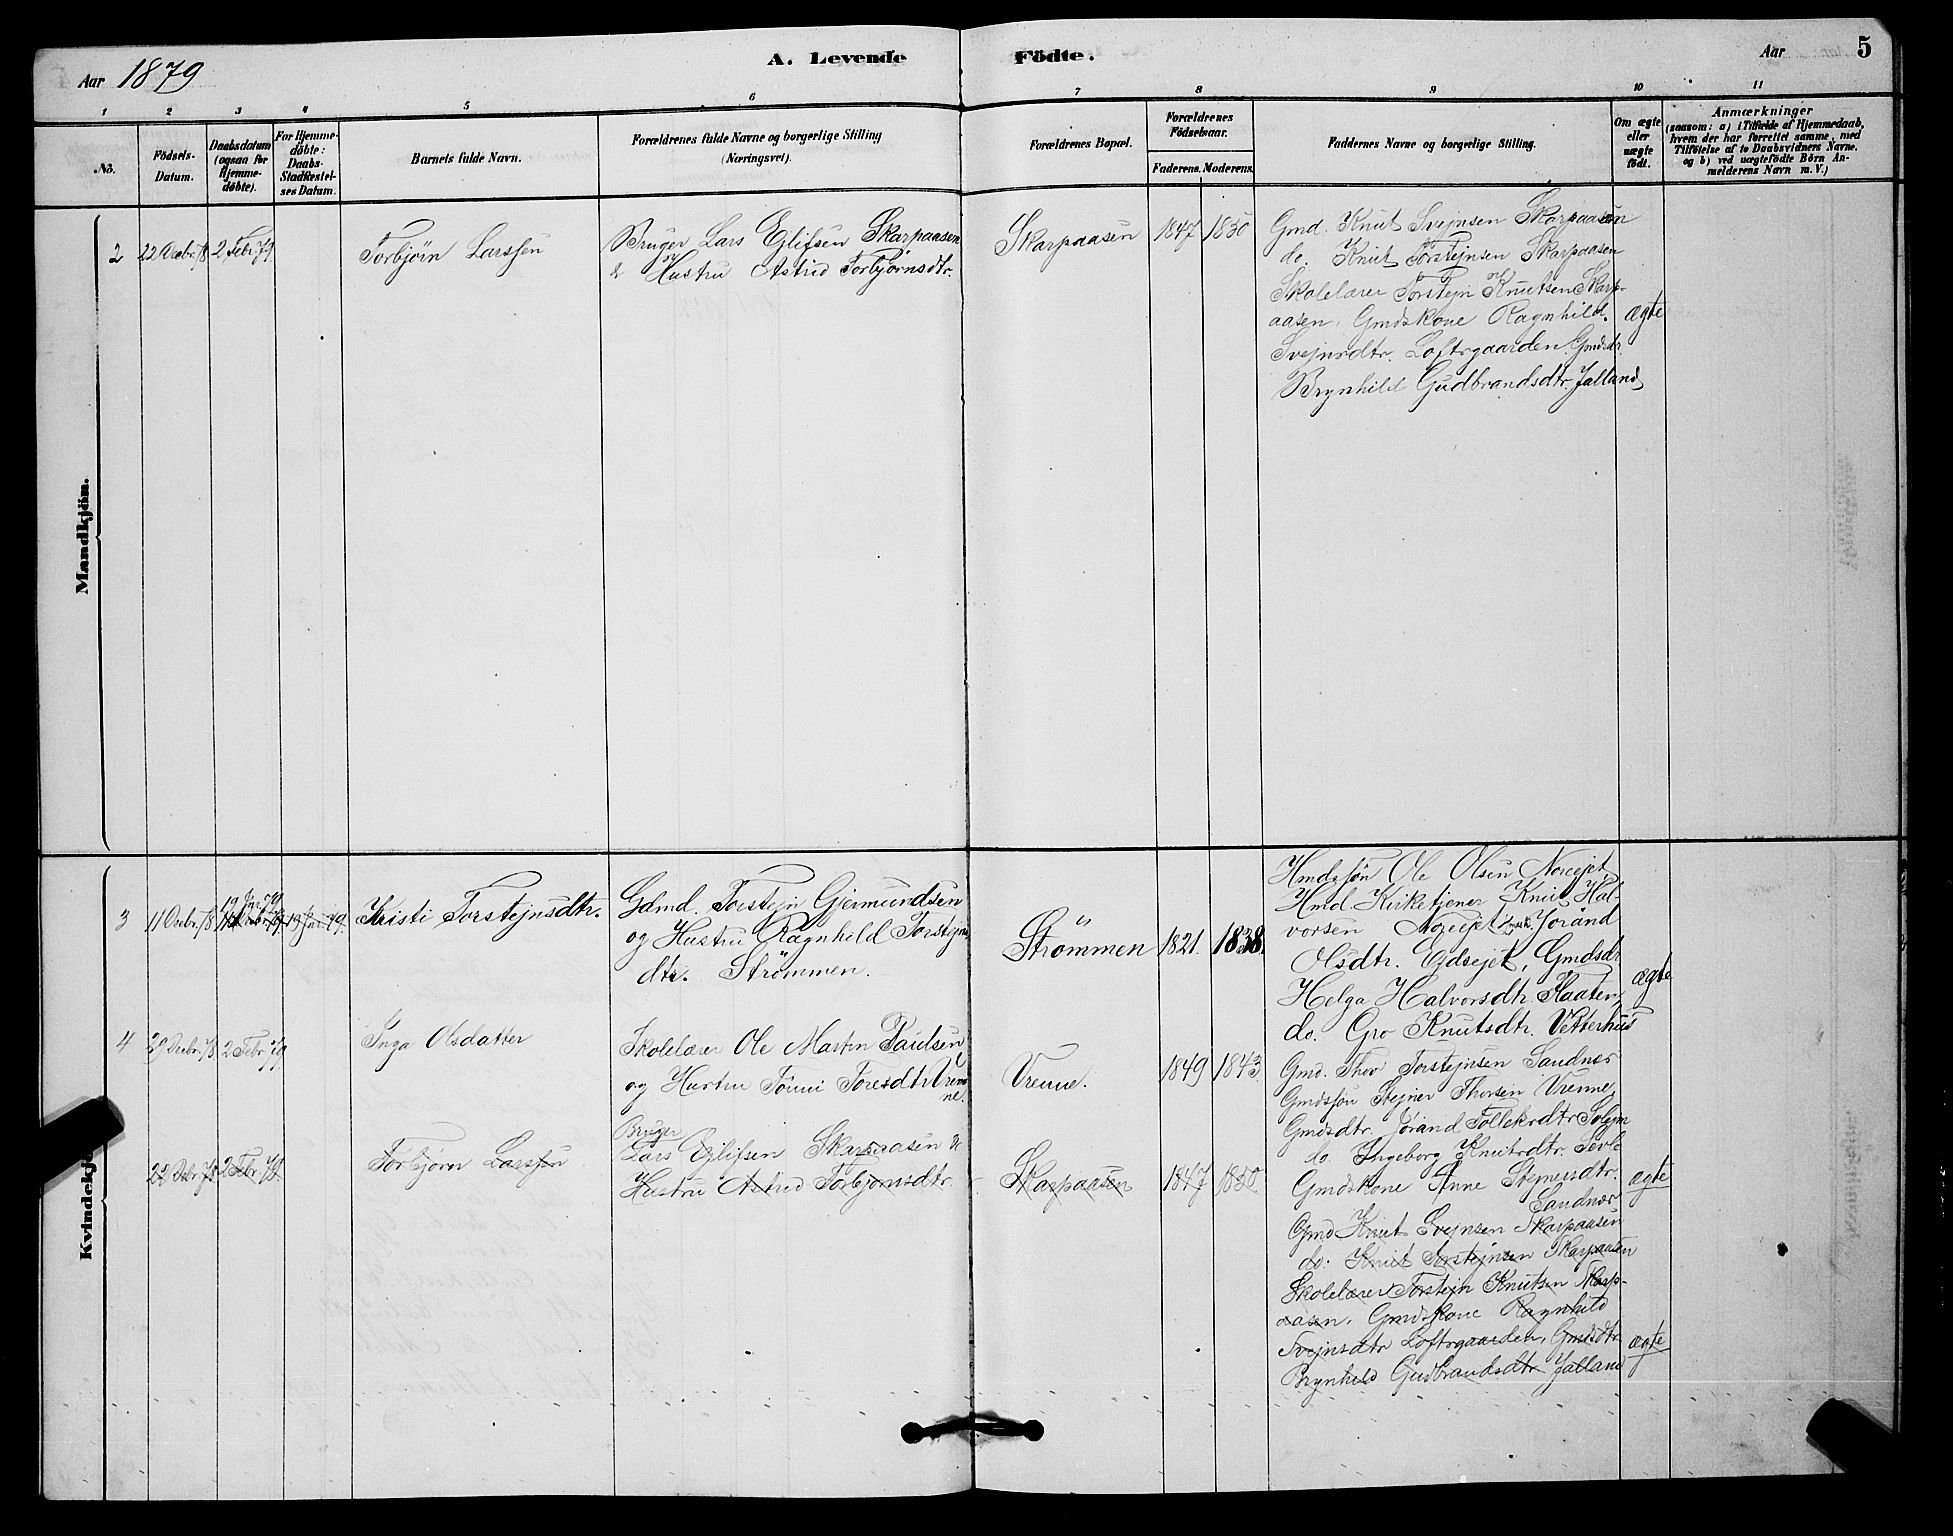 Aar 1879
A. Levende Födte.
Aar
5
1 2 3 4 5 6 7 8 9 10 11
No.
Födsels-
Datum.
Daabsdatum
(ogsaa for
Hjemme-
döbte).
For Hjemme-
döbte:
Daabs-
Stadfæstel-
ses Datum.
Barnets fulde Navn.
Forældrenes fulde Navne og borgerlige Stilling
(Næringsvei).
Forældrenes Bopæl.
Forældrenes
Födselsaar.
Faderens. Moderens.
Faddernes Navne og borgerlige Stilling.
Om ægte
eller
uægte
födt.
Anmærkninger
(saasom: a) i Tilfælde af Hjemmedaab,
hvem der har forrettet samme, med
Tilföielse af to Daabsvidners Navne,
og b) ved uægtefödte Börn An-
melderens Navn m. V.)
Mandkjön.
2
22 Decbr. 78
2 Febr 79
Torbjørn Larssen
Bruger Lars Eilifsen Skarpaasen
& Hustru Astrid Torbjørnsdtr.
Skarpaasen
1847
1850
Gmd. Knut Svejnsen Skarpaasen
do. Knut Torstejnsen Skarpaasen
Skolelærer Torstejn Knutsen Skarp-
aasen, Gmdskone Ragnhild
Svejnsdtr. Loftsgaarden, Gmdsdtr.
Brynhild Gudbrandsdtr. Jalland
ægte
Kvindekjö
3
11 Decbr. 78
19 Jan 79
19 Jan 79.
Kristi Torstejnsdtr.
Gdmd. Torstejn Gjermundsen
og Hustru Ragnhild Torstejns
dtr. Strömmen.
Strömmen
1821.
1838.
Hmdssön Ole Olsen Noreejet,
Hmd. Kirketjener Knut Hal-
vorsen Noreejet, Joränd
Olsdtr. Ejdsejet, Gmdsdtr
Helga Halvorsdtr. Flaaten,
do. Gro Knutsdtr. Vetterhus
ægte
4
29 Decbr. 78
2 Febr. 79
Inga Olsdatter
Skolelærer Ole Martin Paulsen
og Hustru Tönni Toresdtr. Vren
ne.
Vrenne.
1849
1843
Gmd. Thor Torstejnsen Sandnær
Gmdssön Stejner Thorsen Vrenne,
Gmdsdtr. Jorand Tollekrdtr Solejm
do. Ingeborg Knutrdtr. Sevle
Gmdskone Anne Stejnersdtr.
Sandnær
ægte
22 Decbr. 78
2 Febr. 79.
Torbjörn Larssen
Bruger
Lars Eilifsen Skarpaasen &
Hustru Astrid Torbjörnsdtr.
Skarpaasen
1847
1850
Gmd Knut Svejnsen Skarpaasen
do. Knut Torstejnsen Skarpaasen
Skolelærer Torstejn Knutsen Skarp-
aasen, Gmdskone Ragnhild
Svejnsdtr Loftsgaarden, Gmdsdtr
Brynhild Gudbrandsdtr Jalland
ægte